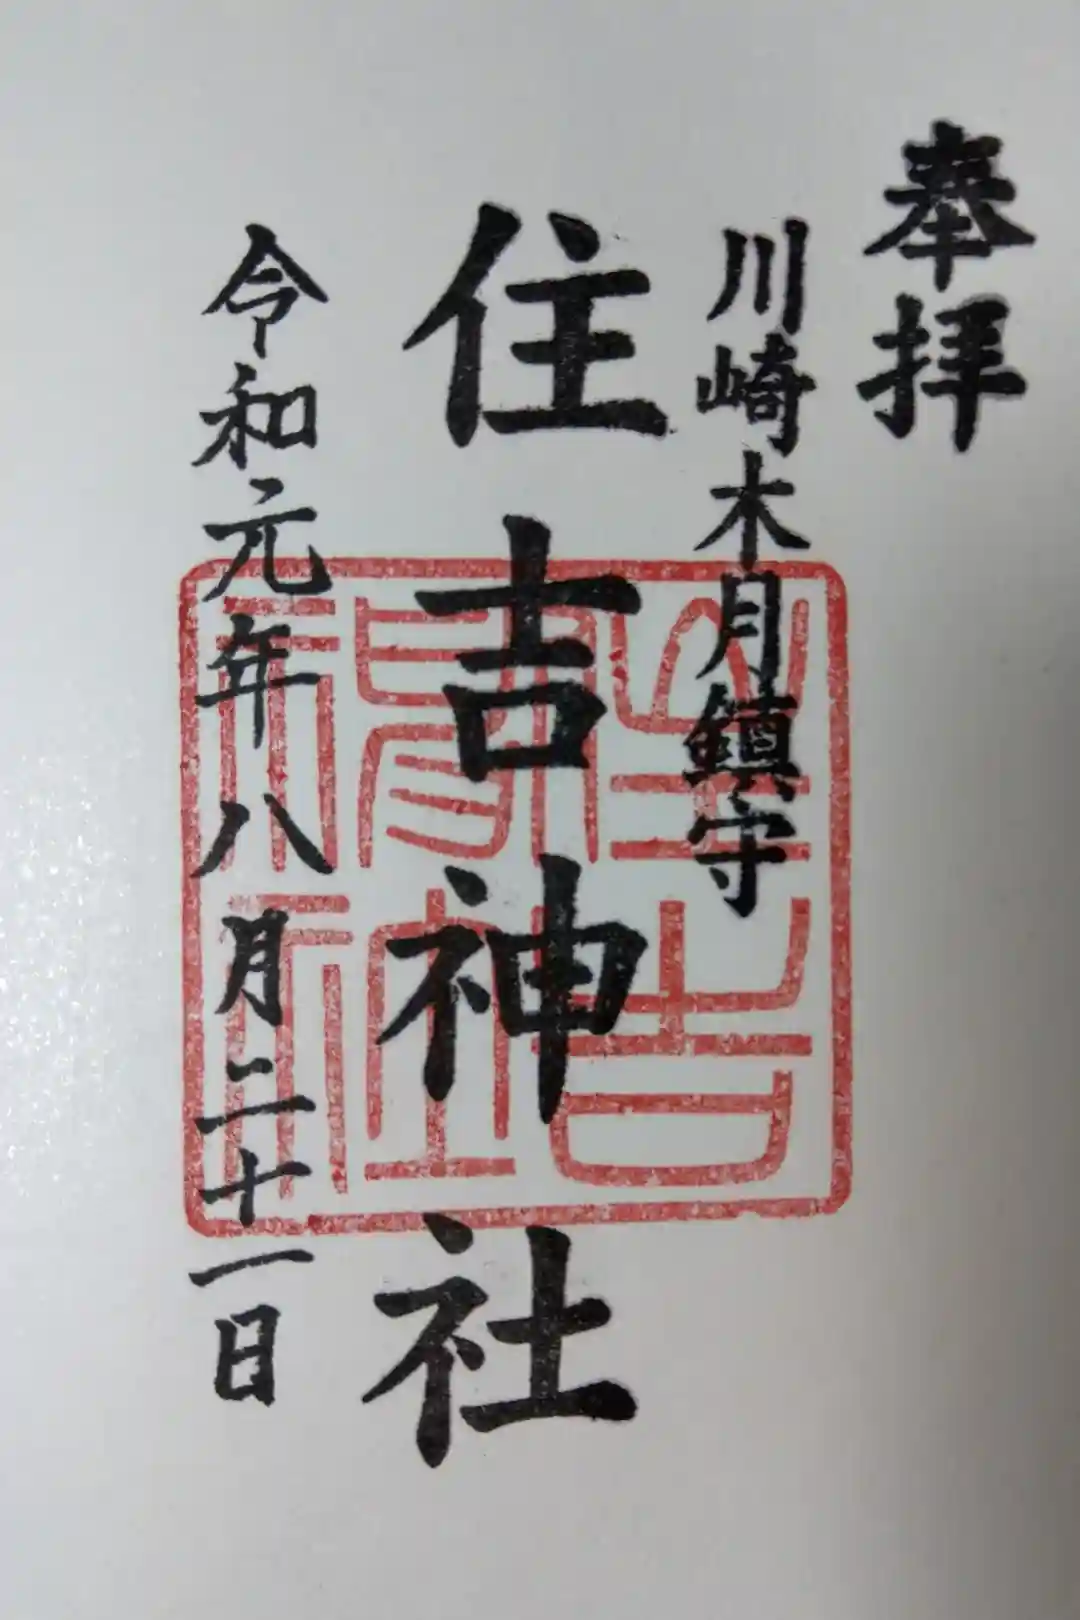 奉拝
川崎木月鎮守
住吉神社
令和元年八月二十一日
住吉
神社